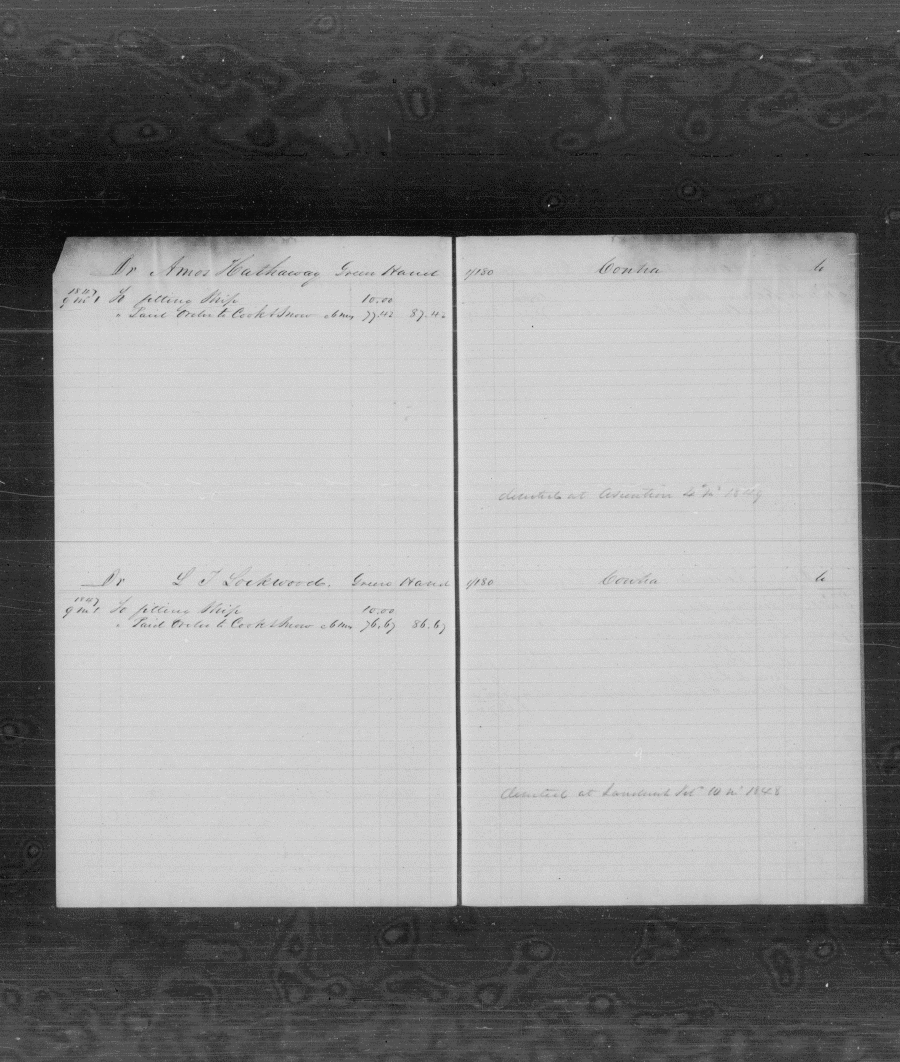 Dr Amos Hathaway Green Hand 1/180 Contra Cr
1847
9 mo 1 To fitting Ship 10.00
" Paid Order to Cook & Snow 77.42 87.42
deserted at Ascention 4 mo 1849
Dr L T Lockwood. Green Hand 1/180 Contra Cr
1847
9 mo 1 To fitting Ship 10.00
" Paid Order to Cook & Snow 76.67 86.67
deserted at 10 mo 1848